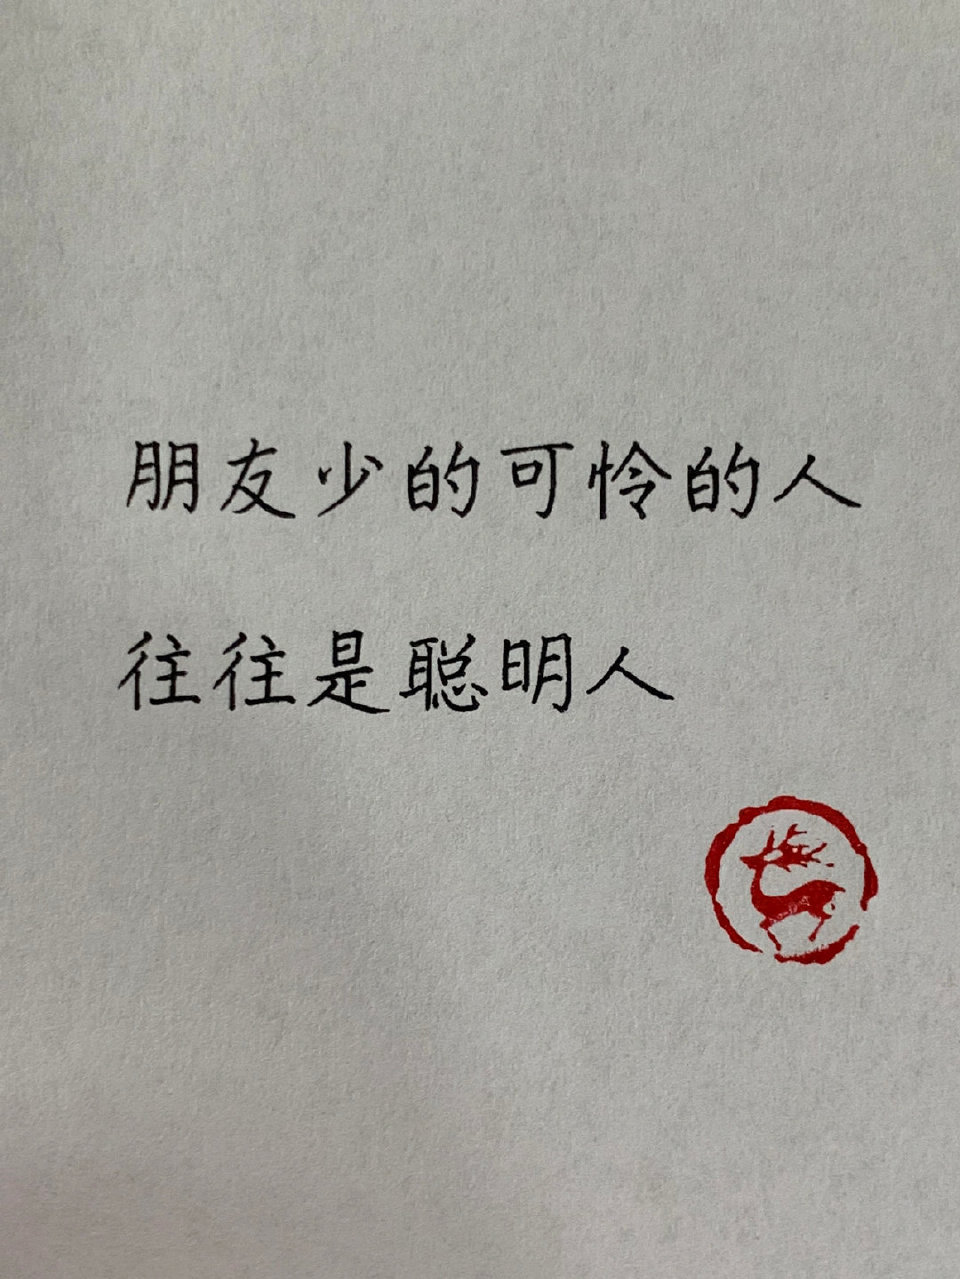 朋友少的可怜的人
往往是聪明人